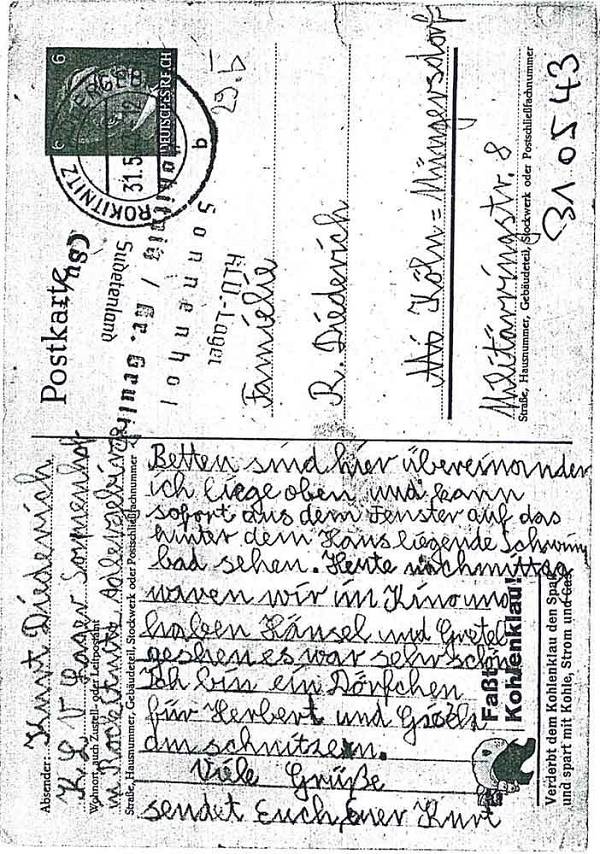 Postkarte
6
6
DEUTSCHES REICH
ROKITNITZ
31.5
b
29.5
KLV-Lager
Sonnenhof
Rokitnitz / Adlergeb
Sudetenland
Familie
R. Diederich
Köln=Müngersdorf
Militärringstr. 8
Straße, Hausnummer, Gebäudeteil, Stockwerk oder Postschließfachnummer
31 05 43
Absender: Kurt Diederich
K L V Lager Sonnenhof
Wohnort, auch Zustell- oder Leitpostamt
in Rockitnitz Adlergebirge
Straße, Hausnummer, Gebäudeteil, Stockwerk oder Postschließfachnummer
Betten sind hier übereinander
ich liege oben und kann
sofort aus dem Fenster auf das
hinter dem Haus liegende Schwimm
bad sehen. Heute nachmittag
waren wir im Kino und
haben Hänsel und Gretel
gesehen es war sehr schön
Ich bin ein Dörfchen
für Herbert und Gisela
am schnitzen.
Viele Grüße
sendet Euch, Euer Kurt
Faßt
Kohlenklau!
Verderbt dem Kohlenklau den Spaß
und spart mit Kohle, Strom und Gas